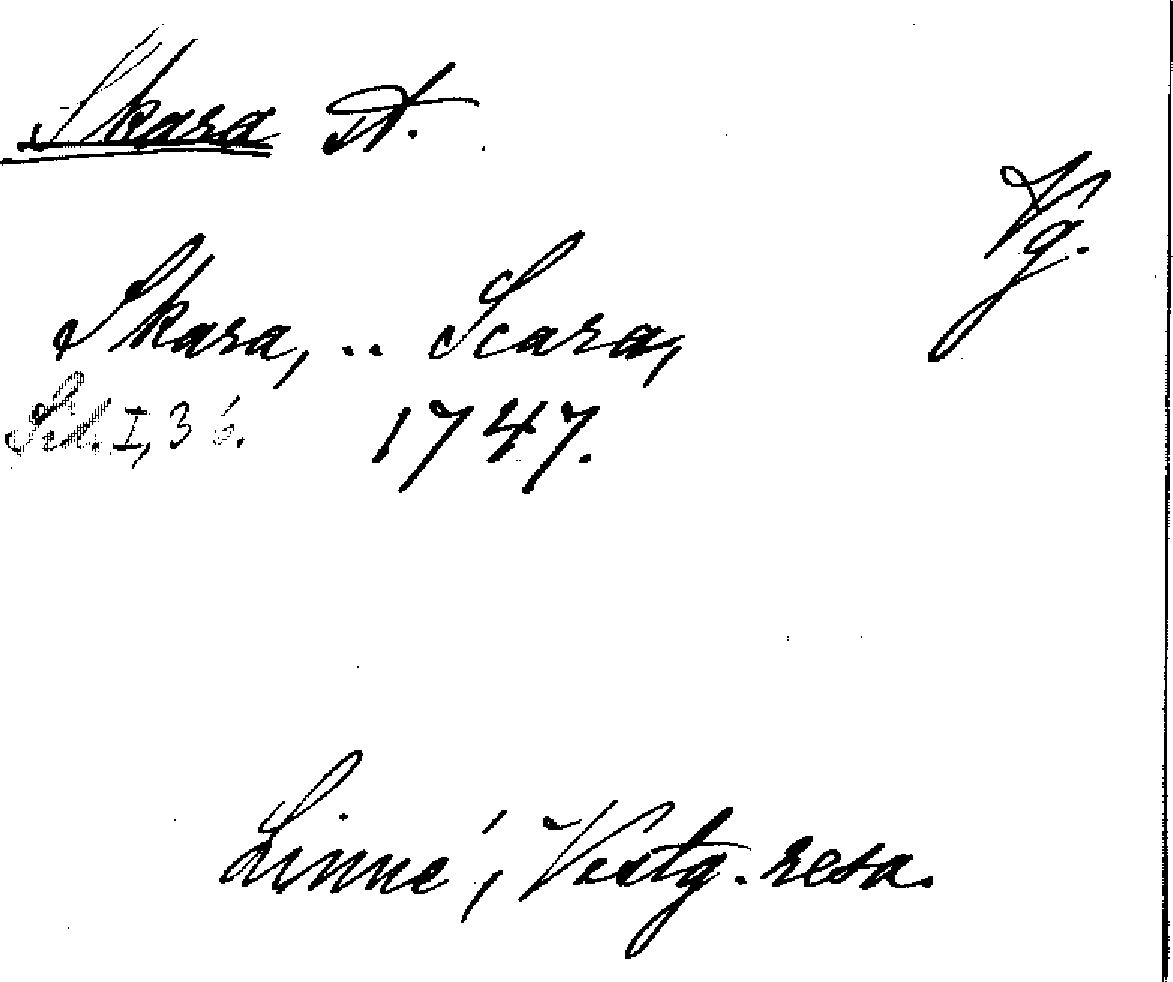 Skara st.
Vg.
Skara, .. Scara,
I, 36. 1747.
Linné, Vestg. resa.